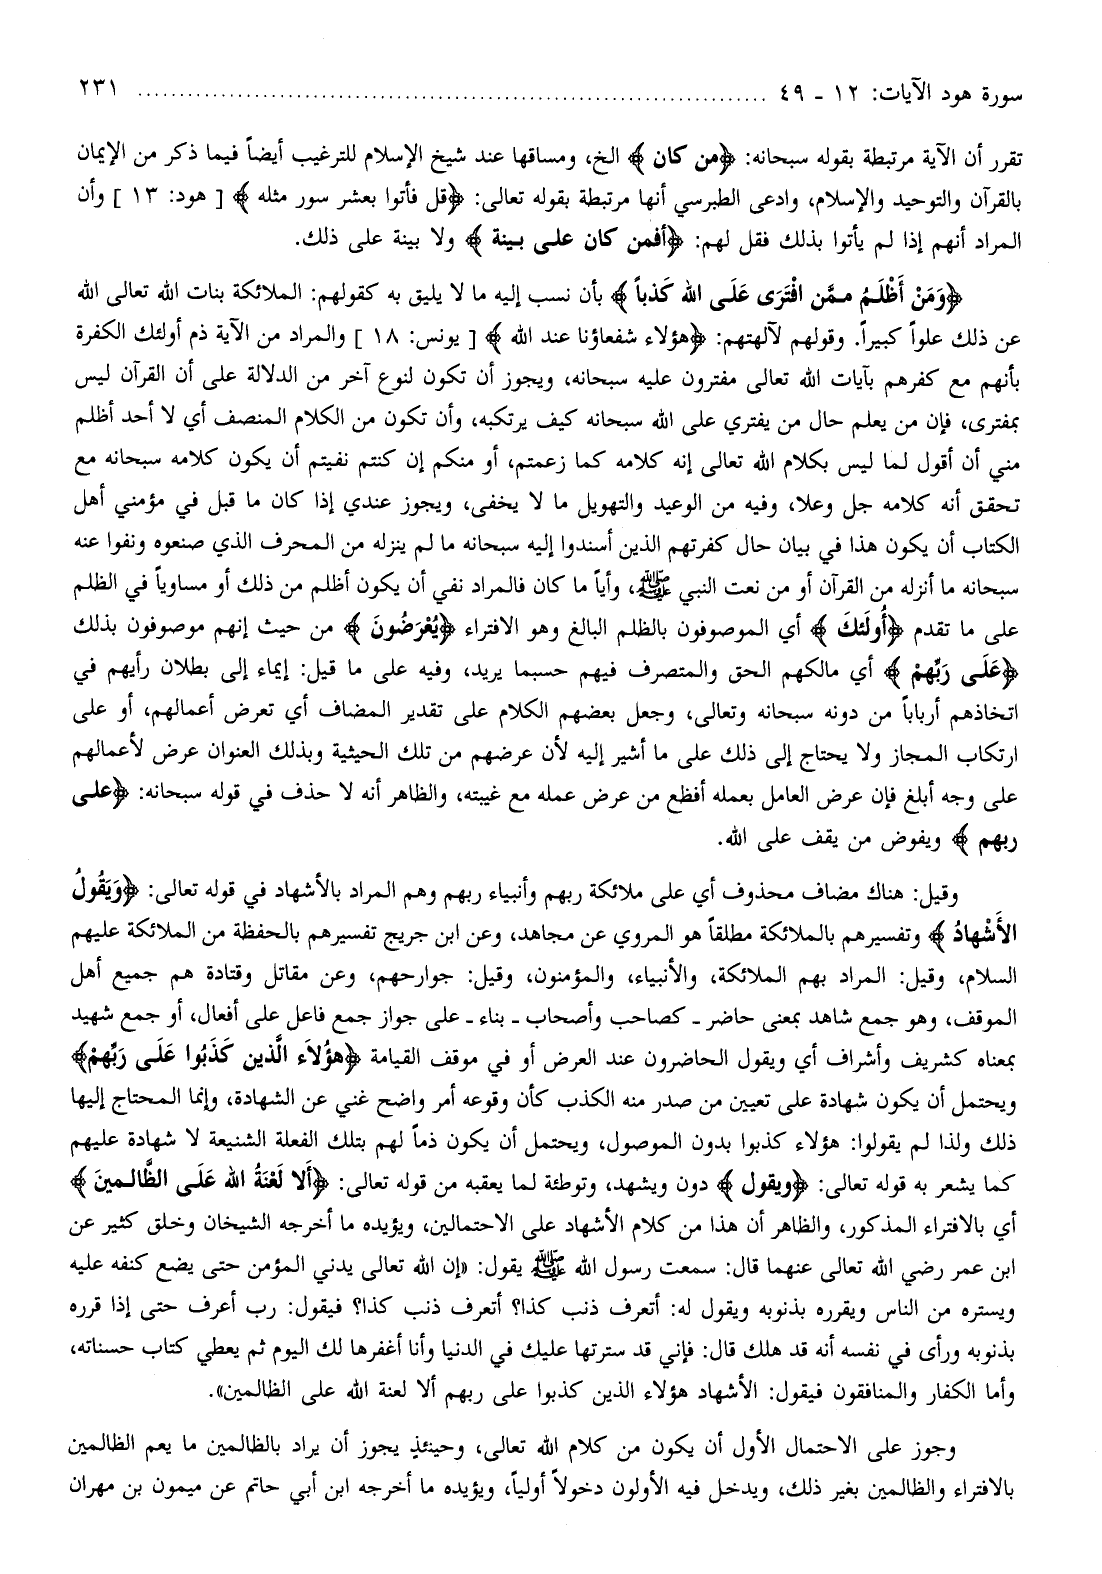 سورة هود الآيات: ١٢ - ٤٩ ........................................ ٢٣١
تقرر أن الآية مرتبطة بقوله سبحانه: ﴿من كان ﴾ الخ، ومساقها عند شيخ الإسلام للترغيب أيضاً فيما ذكر من الإيمان
بالقرآن والتوحيد والإسلام، وادعى الطبرسي أنها مرتبطة بقوله تعالى: ﴿قل فأتوا بعشر سور مثله ﴾ [ هود: ١٣ ] وأن
المراد أنهم إذا لم يأتوا بذلك فقل لهم: ﴿أفمن كان على بينة ﴾ ولا بينة على ذلك.
﴿وَمَنْ أَظْلَمُ ممَّن افْتَرَى عَلَى الله كَذباً ﴾ بأن نسب إليه ما لا يليق به كقولهم: الملائكة بنات الله تعالى الله
عن ذلك علواً كبيراً. وقولهم لآلهتهم: ﴿هؤلاء شفعاؤنا عند الله ﴾ [ يونس: ١٨ ] والمراد من الآية ذم أولئك الكفرة
بأنهم مع كفرهم بآيات الله تعالى مفترون عليه سبحانه، ويجوز أن تكون لنوع آخر من الدلالة على أن القرآن ليس
بمفترى، فإن من يعلم حال من يفتري على الله سبحانه كيف يرتكبه، وأن تكون من الكلام المنصف أي لا أحد أظلم
مني أن أقول لما ليس بكلام الله تعالى إنه كلامه كما زعمتم، أو منكم إن كنتم نفيتم أن يكون كلامه سبحانه مع
تحقق أنه كلامه جل وعلا، وفيه من الوعيد والتهويل ما لا يخفى، ويجوز عندي إذا كان ما قبل في مؤمني أهل
الكتاب أن يكون هذا في بيان حال كفرتهم الذين أسندوا إليه سبحانه ما لم ينزله من المحرف الذي صنعوه ونفوا عنه
سبحانه ما أنزله من القرآن أو من نعت النبي ﷺ، وأياً ما كان فالمراد نفي أن يكون أظلم من ذلك أو مساوياً في الظلم
على ما تقدم ﴿أُولَئكَ ﴾ أي الموصوفون بالظلم البالغ وهو الافتراء ﴿يُعْرَضُونَ ﴾ من حيث إنهم موصوفون بذلك
﴿عَلَى رَبِّهمْ ﴾ أي مالكهم الحق والمتصرف فيهم حسبما يريد، وفيه على ما قيل: إيماء إلى بطلان رأيهم في
اتخاذهم أرباباً من دونه سبحانه وتعالى، وجعل بعضهم الكلام على تقدير المضاف أي تعرض أعمالهم، أو على
ارتكاب المجاز ولا يحتاج إلى ذلك على ما أشير إليه لأن عرضهم من تلك الحيثية وبذلك العنوان عرض لأعمالهم
على وجه أبلغ فإن عرض العامل بعمله أفظع من عرض عمله مع غيبته، والظاهر أنه لا حذف في قوله سبحانه: ﴿على
ربهم ﴾ ويفوض من يقف على الله.
وقيل: هناك مضاف محذوف أي على ملائكة ربهم وأنبياء ربهم وهم المراد بالأشهاد في قوله تعالى: ﴿وَيَقُولُ
الأَشْهادُ ﴾ وتفسيرهم بالملائكة مطلقاً هو المروي عن مجاهد، وعن ابن جريج تفسيرهم بالحفظة من الملائكة عليهم
السلام، وقيل: المراد بهم الملائكة، والأنبياء، والمؤمنون، وقيل: جوارحهم، وعن مقاتل وقتادة هم جميع أهل
الموقف، وهو جمع شاهد بمعنى حاضر ـ كصاحب وأصحاب ـ بناء ـ على جواز جمع فاعل على أفعال، أو جمع شهيد
بمعناه كشريف وأشراف أي ويقول الحاضرون عند العرض أو في موقف القيامة ﴿هؤُلاَء الَّذين كَذَبُوا عَلَى رَبِّهمْ﴾
ويحتمل أن يكون شهادة على تعيين من صدر منه الكذب كأن وقوعه أمر واضح غني عن الشهادة، وإنما المحتاج إليها
ذلك ولذا لم يقولوا: هؤلاء كذبوا بدون الموصول، ويحتمل أن يكون ذماً لهم بتلك الفعلة الشنيعة لا شهادة عليهم
كما يشعر به قوله تعالى: ﴿ويقول ﴾ دون ويشهد، وتوطئة لما يعقبه من قوله تعالى: ﴿أَلا لَعْنَةُ الله عَلَى الظَّالـمينَ ﴾
أي بالافتراء المذكور، والظاهر أن هذا من كلام الأشهاد على الاحتمالين، ويؤيده ما أخرجه الشيخان وخلق كثير عن
ابن عمر رضي الله تعالى عنهما قال: سمعت رسول الله ﷺ يقول: «إن الله تعالى يدني المؤمن حتى يضع كنفه عليه
ويستره من الناس ويقرره بذنوبه ويقول له: أتعرف ذنب كذا؟ أتعرف ذنب كذا؟ فيقول: رب أعرف حتى إذا قرره
بذنوبه ورأى في نفسه أنه قد هلك قال: فإني قد سترتها عليك في الدنيا وأنا أغفرها لك اليوم ثم يعطي كتاب حسناته،
وأما الكفار والمنافقون فيقول: الأشهاد هؤلاء الذين كذبوا على ربهم ألا لعنة الله على الظالمين».
وجوز على الاحتمال الأول أن يكون من كلام الله تعالى، وحينئذٍ يجوز أن يراد بالظالمين ما يعم الظالمين
بالافتراء والظالمين بغير ذلك، ويدخل فيه الأولون دخولاً أولياً، ويؤيده ما أخرجه ابن أبي حاتم عن ميمون بن مهران